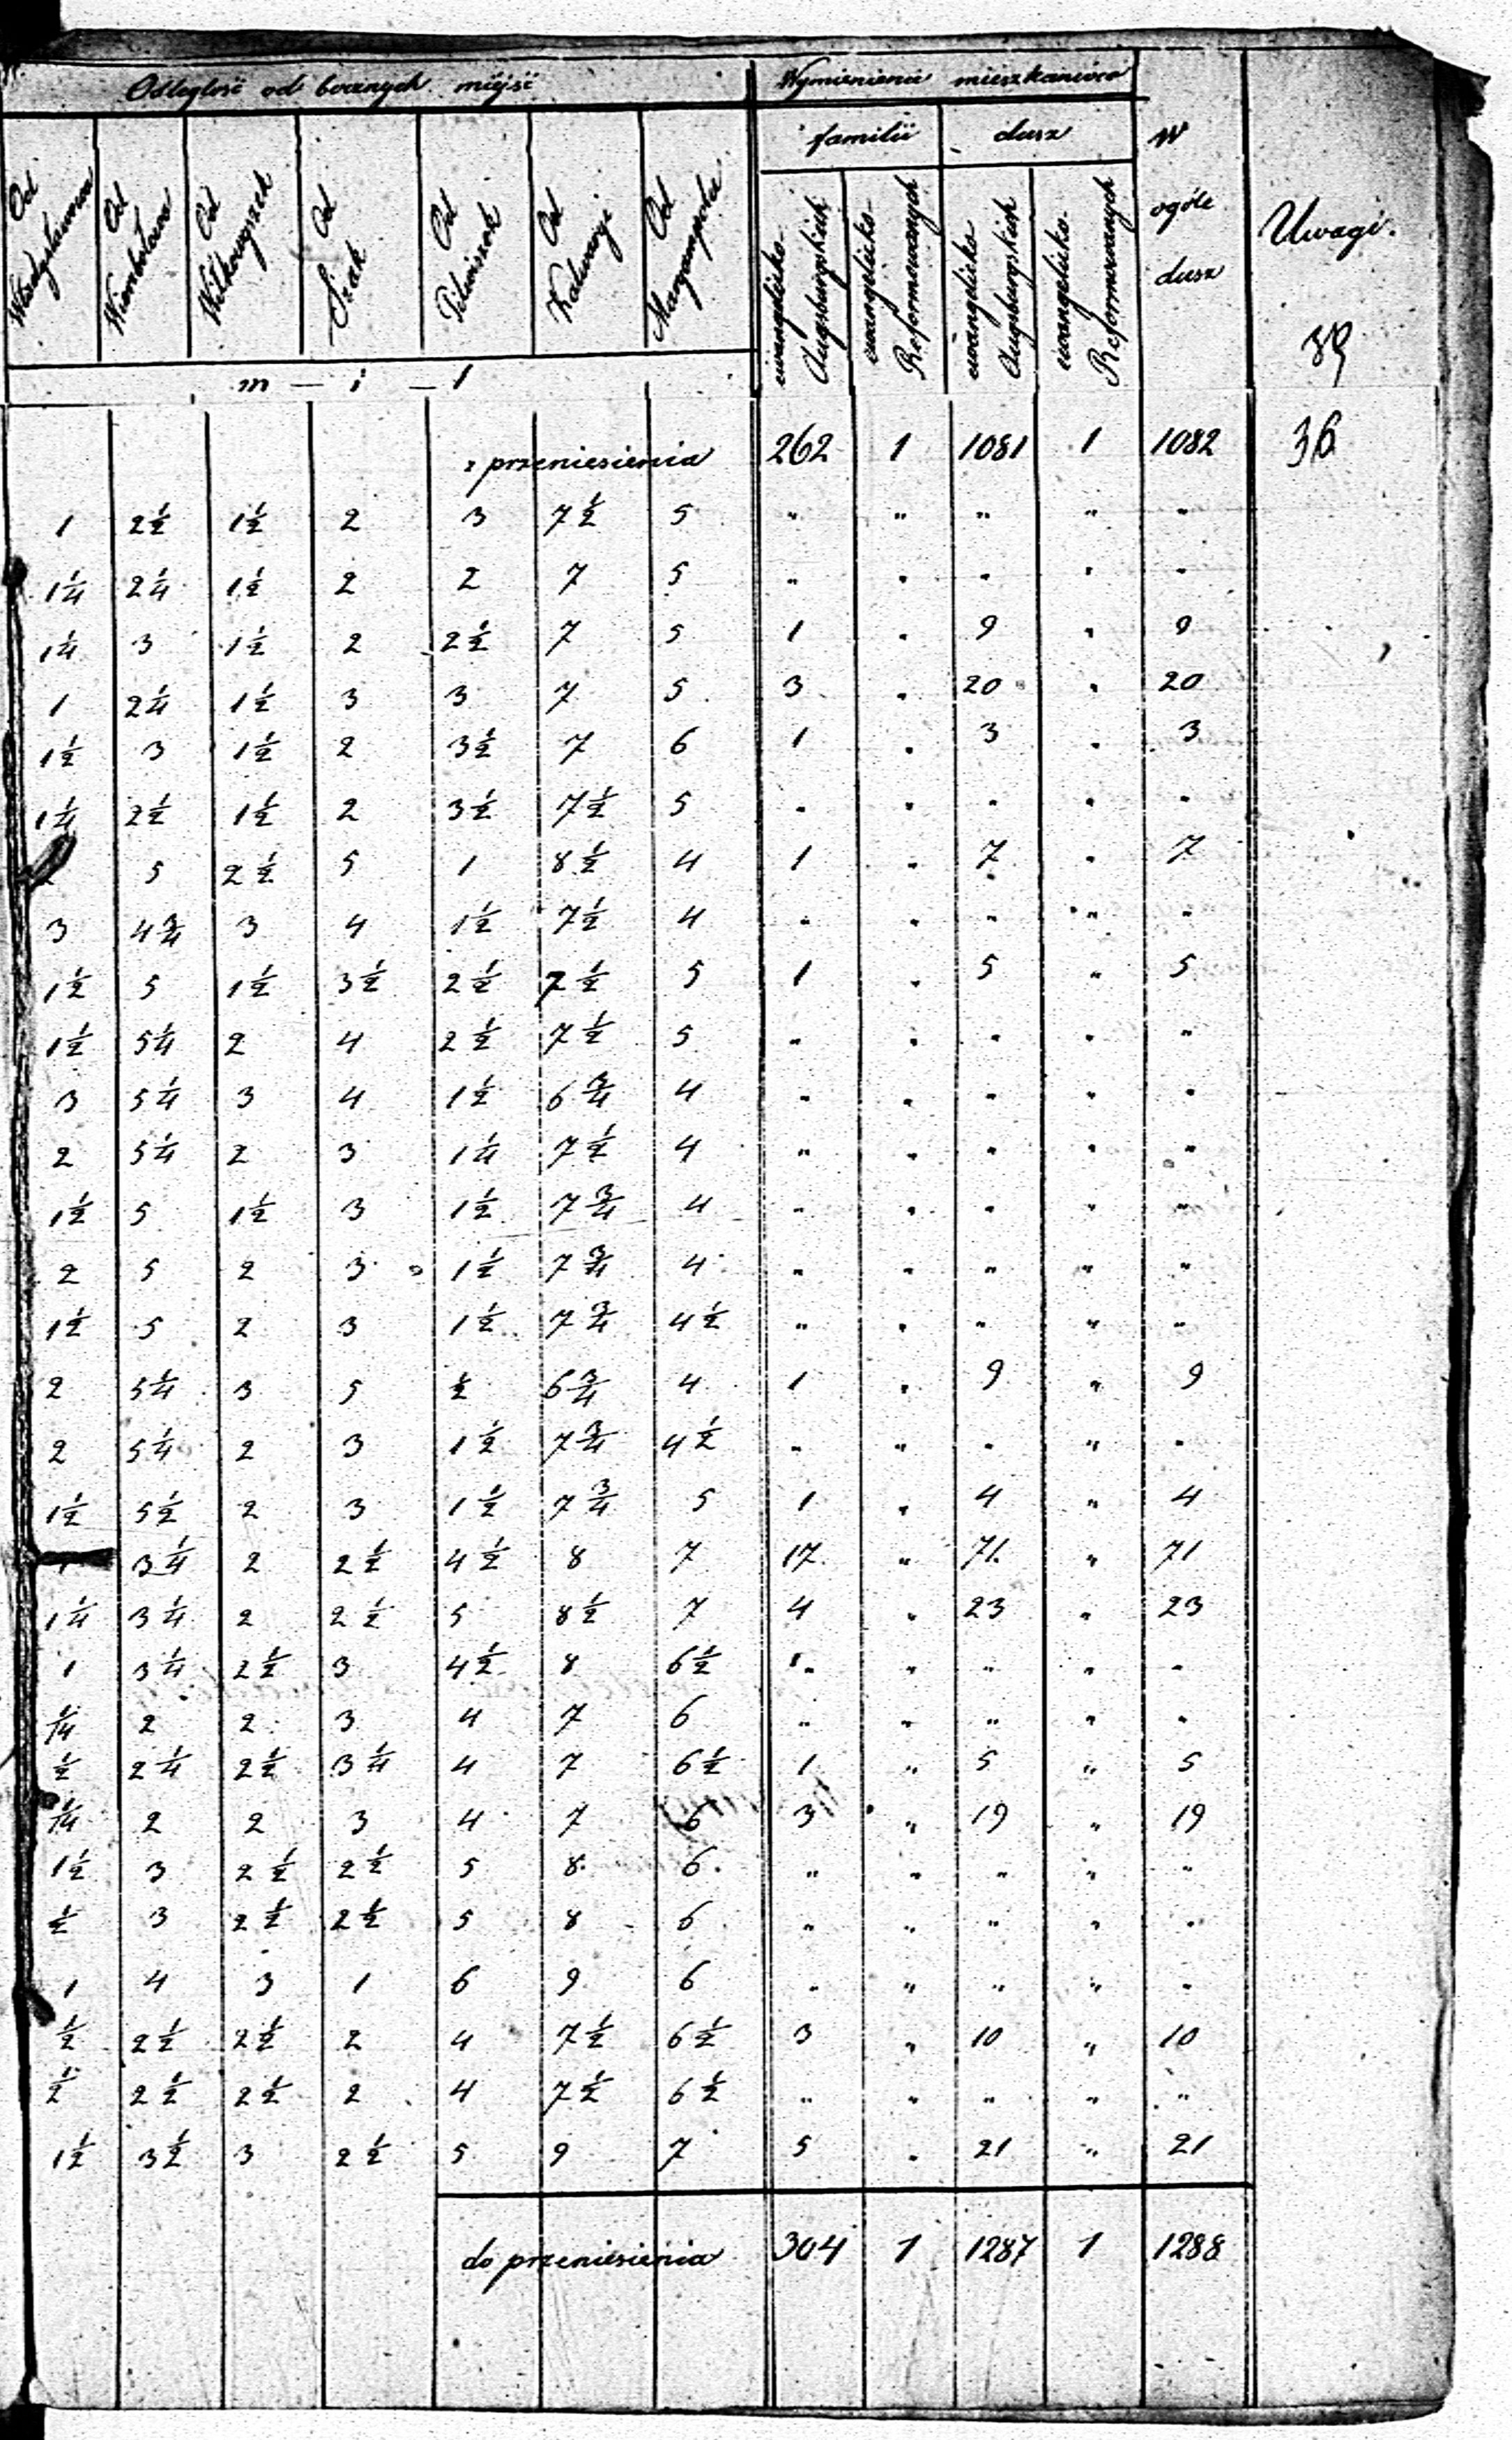 Odległość od bocznych miejsc Wymienienie mieszkańców
familii dusz w ogóle dusz Uwagi.
Od Władysławowa Od Wierzbołowa Od Wiłkowyszek Od Szak Od Pilwiszek Od Kalwaryi Od Maryampola ewangelicko-Augsburgskich ewangelicko-Reformowanych ewangelicko-Augsburgskich ewangelicko-Reformowanych
89
m — i — l
z przeniesienia 262 1 1081 1 1082 36
1 2½ 1½ 2 3 7½ 5 " " " " "
1¼ 2¼ 1½ 2 2 7 5 " " " " "
1¼ 3 1½ 2 2½ 7 5 1 " 9 " 9
1 2¼ 1½ 3 3 7 5 3 " 20 " 20
1½ 3 1½ 2 3½ 7 6 1 " 3 " 3
1¼ 2½ 1½ 2 3½ 7½ 5 " " " " "
2 5 2½ 5 1 8½ 4 1 " 7 " 7
3 4¾ 3 4 1½ 7½ 4 " " " " "
1½ 5 1½ 3½ 2½ 7½ 5 1 " 5 " 5
1½ 5¼ 2 4 2½ 7½ 5 " " " " "
3 5¼ 3 4 1½ 6¾ 4 " " " " "
2 5¼ 2 3 1¼ 7½ 4 " " " " "
1½ 5 1½ 3 1½ 7¾ 4 " " " " "
2 5 2 3 1½ 7¾ 4 " " " " "
1½ 5 2 3 1½ 7¾ 4½ " " " " "
2 5¼ 3 5 ½ 6¾ 4 1 " 9 " 9
2 5¼ 2 3 1½ 7¾ 4½ " " " " "
1½ 5½ 2 3 1½ 7¾ 5 1 " 4 " 4
1 3¼ 2 2½ 4½ 8 7 17 " 71 " 71
1¼ 3¼ 2 2½ 5 8½ 7 4 " 23 " 23
1 3¼ 2½ 3 4½ 8 6½ " " " " "
¼ 2 2 3 4 7 6 " " " " "
½ 2¼ 2½ 3¼ 4 7 6½ 1 " 5 " 5
¼ 2 2 3 4 7 6 3 " 19 " 19
1½ 3 2½ 2½ 5 8 6 " " " " "
½ 3 2½ 2½ 5 8 6 " " " " "
1 4 3 1 6 9 6 " " " " "
½ 2½ 2½ 2 4 7½ 6½ 3 " 10 " 10
½ 2½ 2½ 2 4 7½ 6½ " " " " "
1½ 3½ 3 2½ 5 9 7 5 " 21 " 21
do przeniesienia 304 1 1287 1 1288